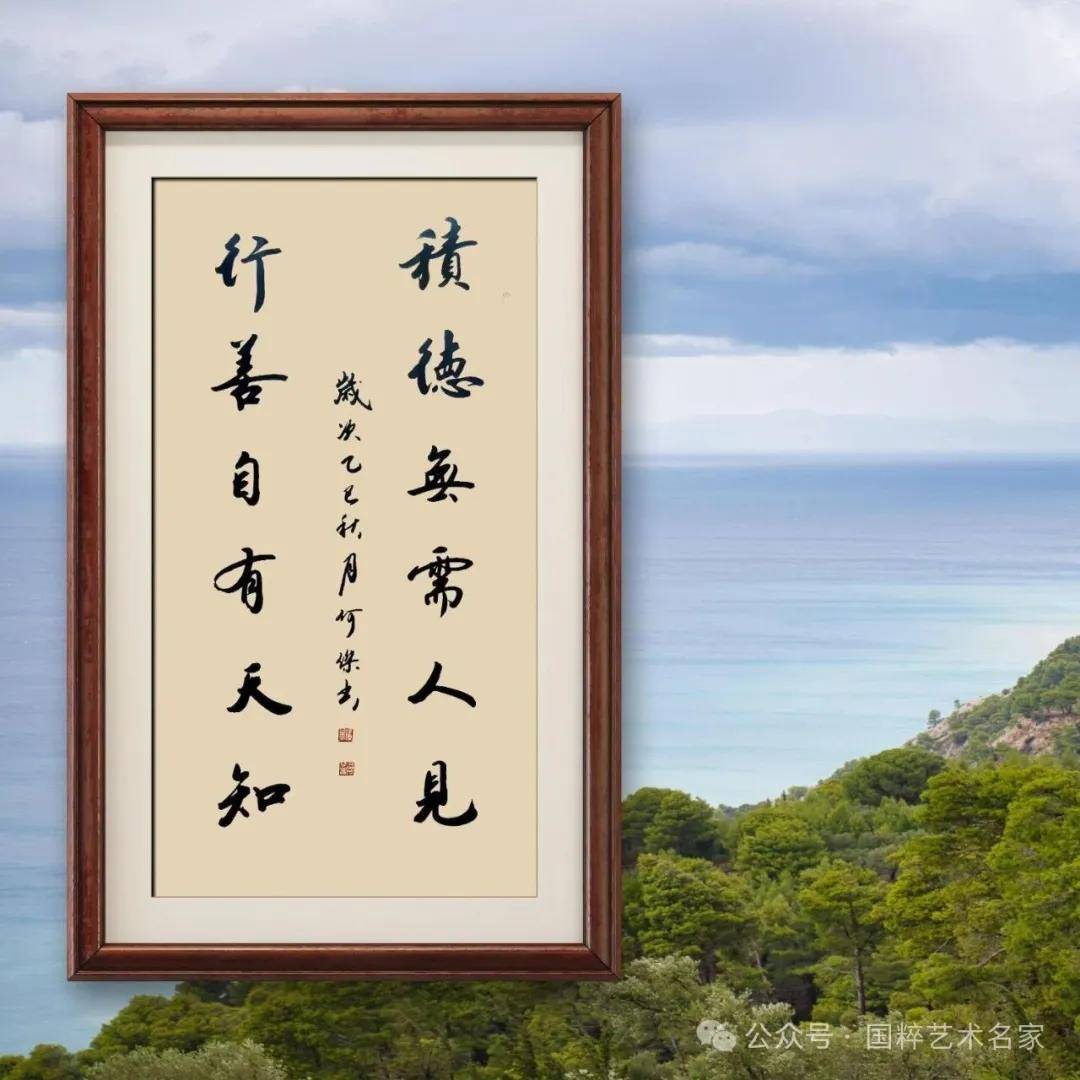 積德無需人見
行善自有天知
歲次乙巳秋月何傑書
公众号·国粹艺术名家